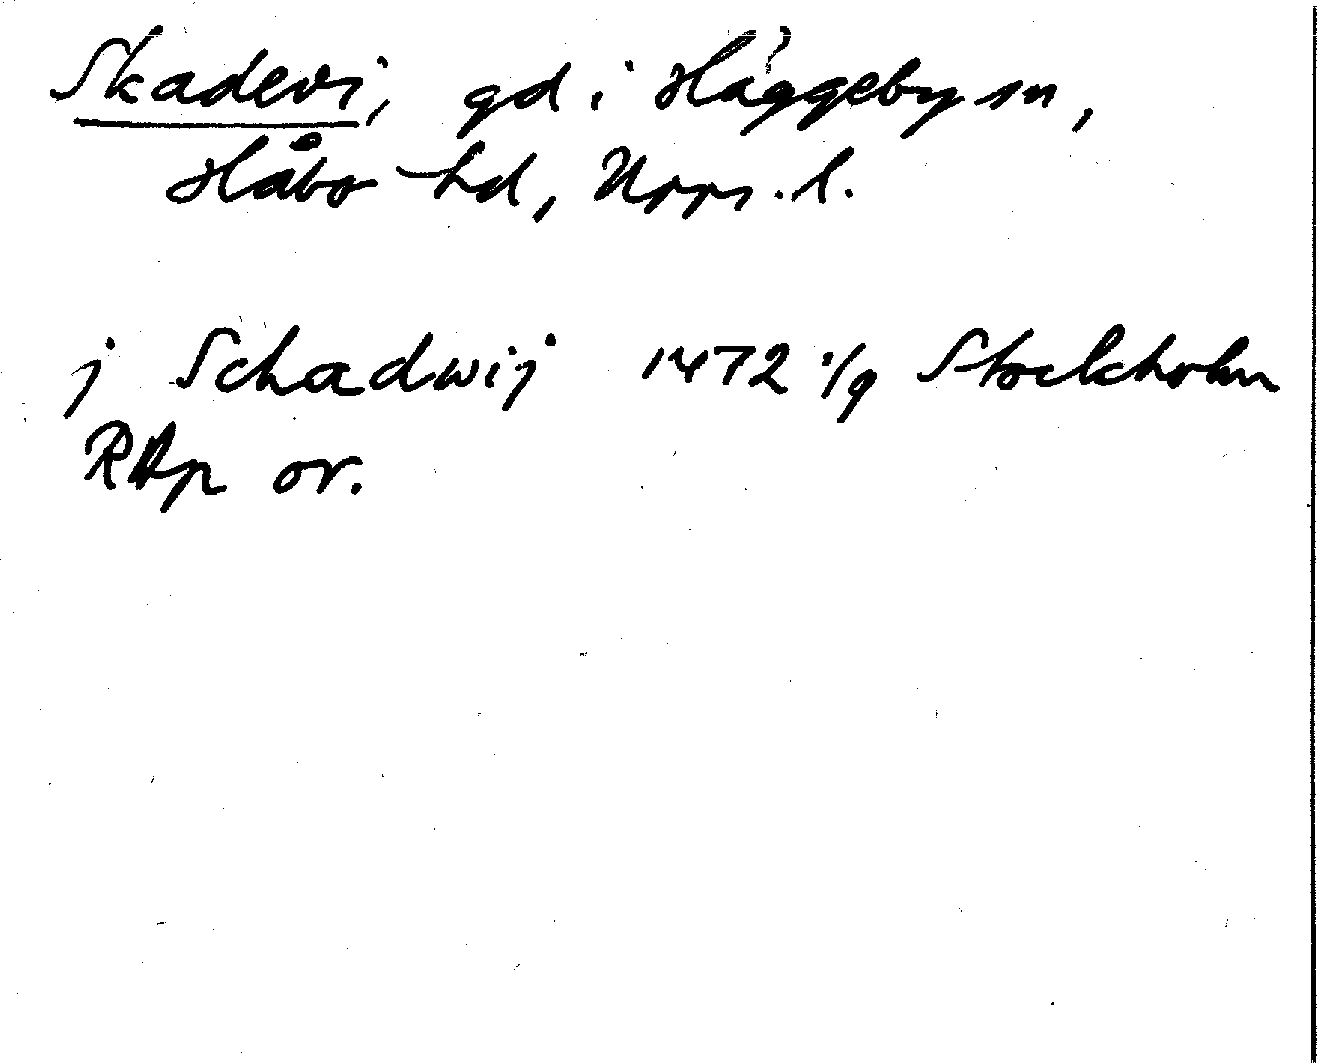 Skadevi, gd i Häggeby sn,
Håbo hd, Upps. l.
j Schadwij 1472 1/9 Stockholm
RAp or.